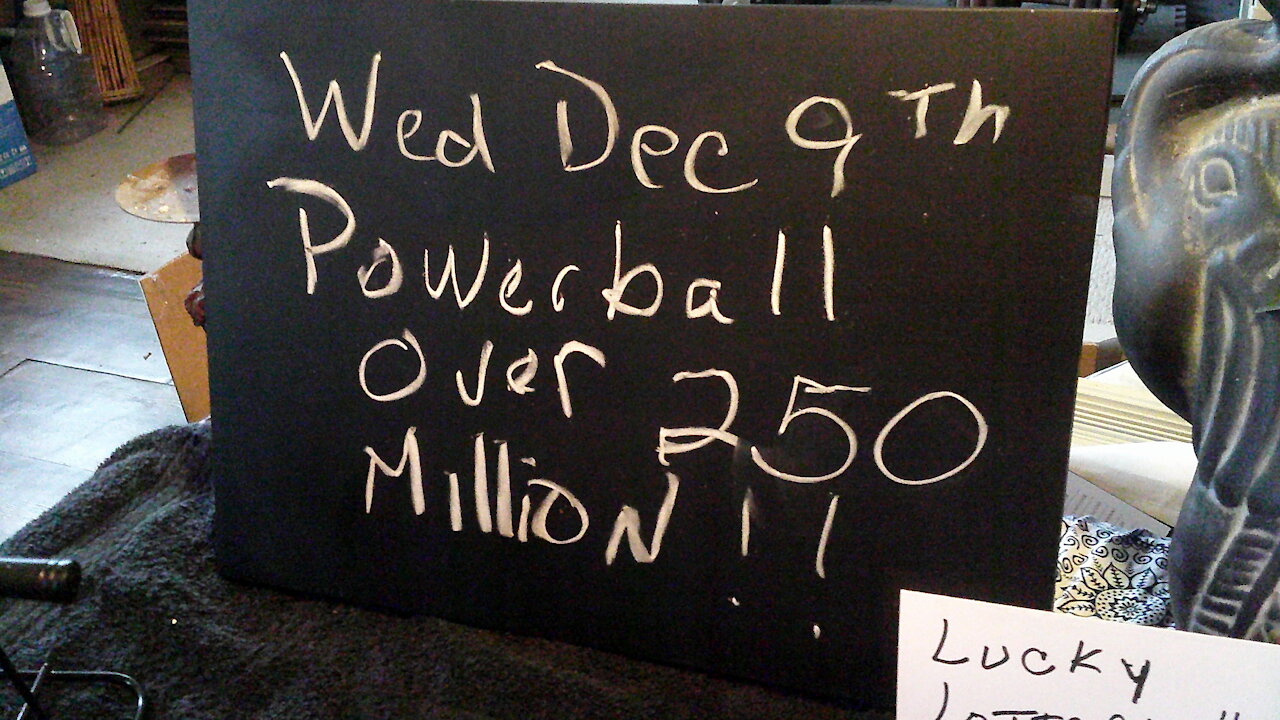 Wed Dec 9Th
Powerball
Over 250
MillioN !!
LUCKY